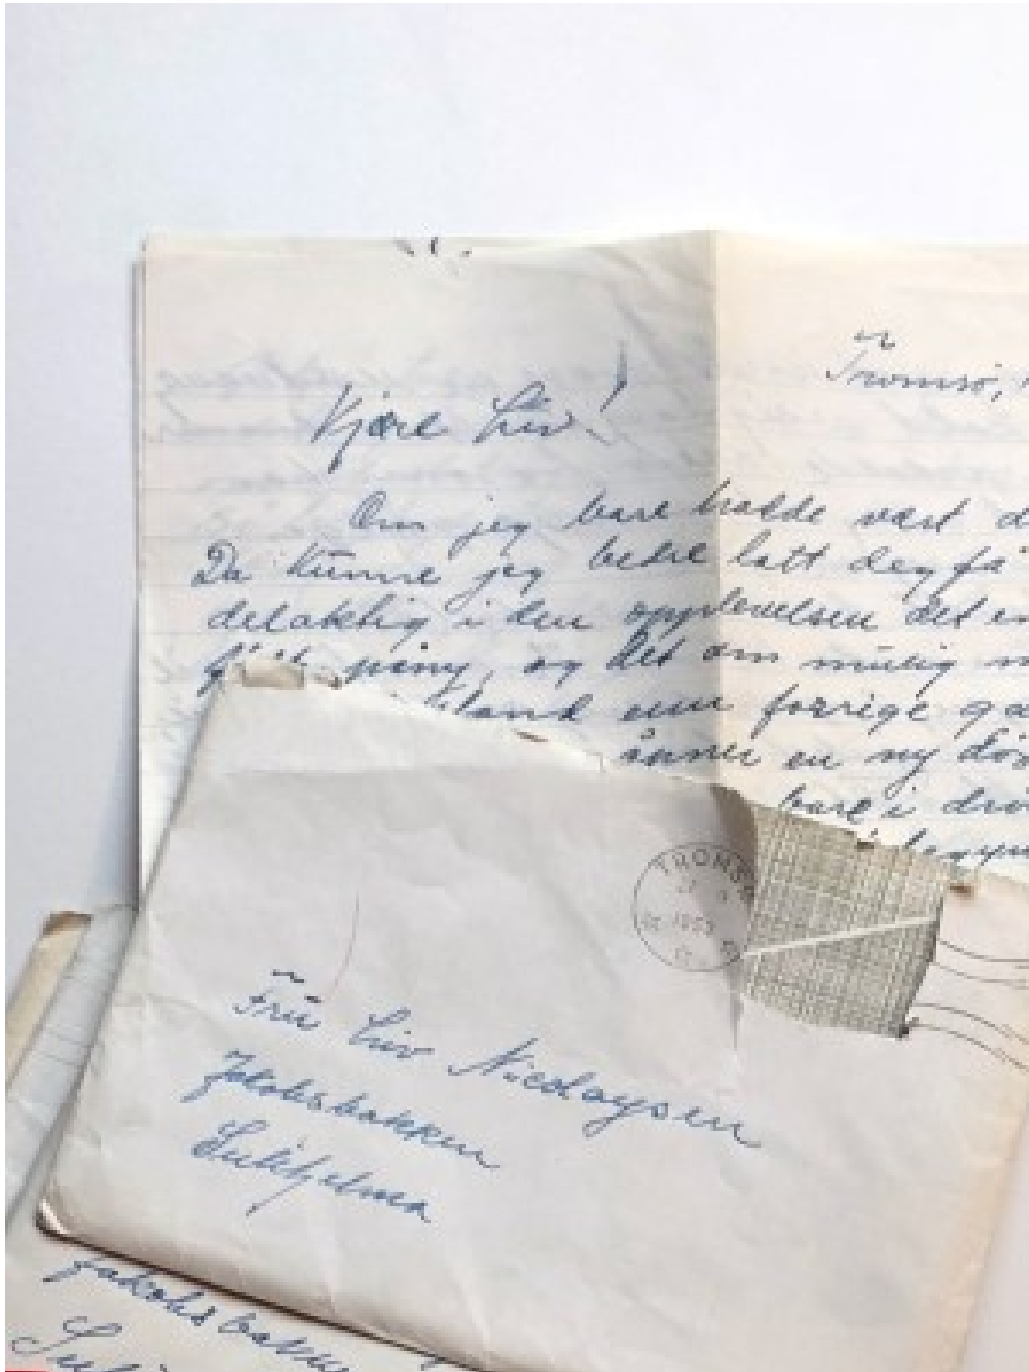 Tromsø,
Kjære Liv!
Om jeg bare hadde vært d
Da kunne jeg bedre latt deg få
delaktig i den opplevelsen det er
født påny, og det om mulig m
stand enn forrige ga
finner en ny dør
bare i drø
begyn
TROMSØ
1953
Fru Liv Nicolaysen
Jakobsbakken
Sulitjelma
Jakobsbakken
Suli